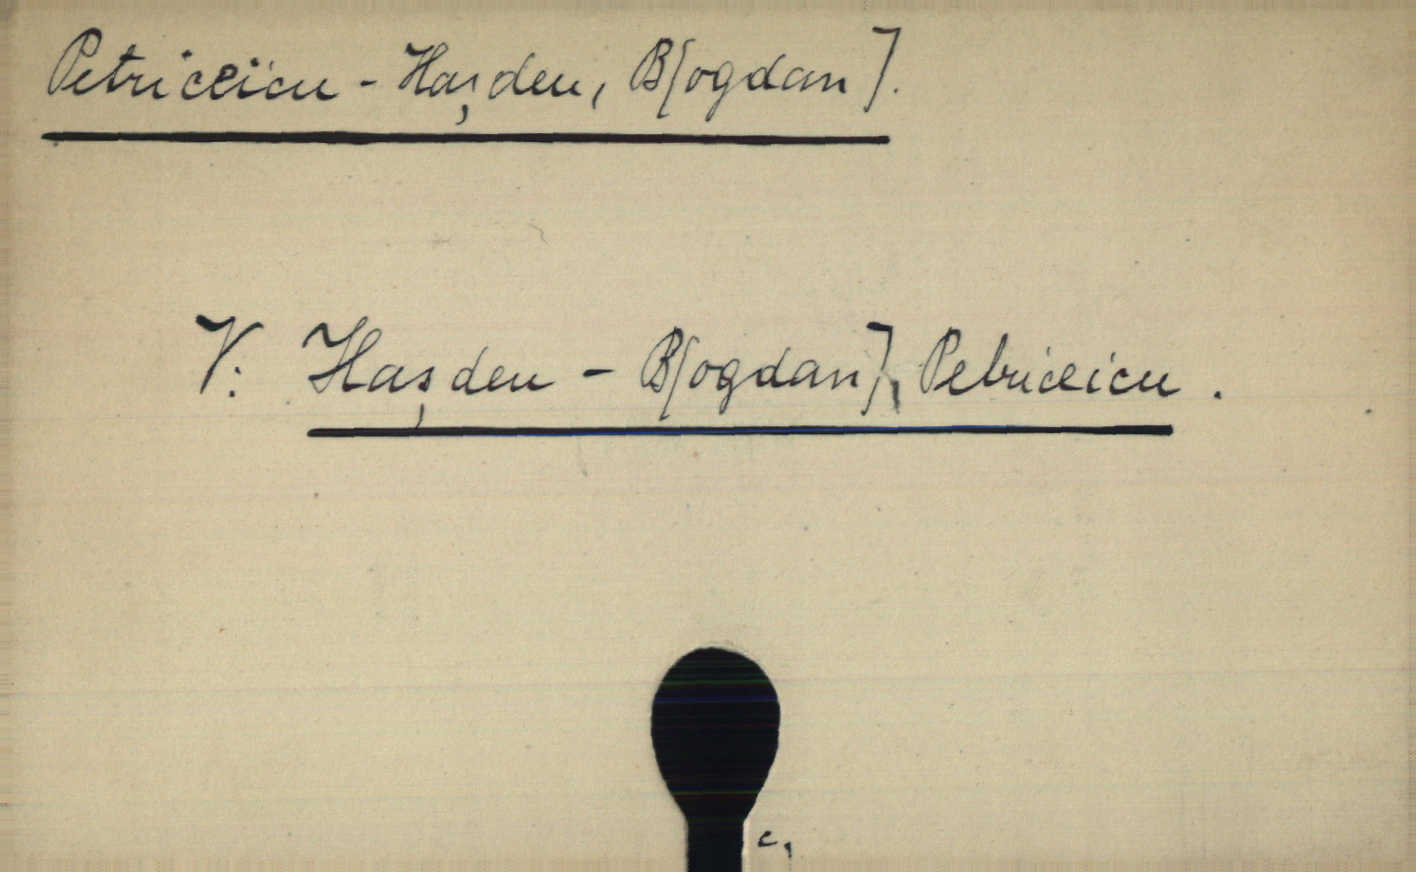 Petriceicu - Hașdeu, B[ogdan].
V: Hașdeu - B[ogdan], Petriceicu.
c,